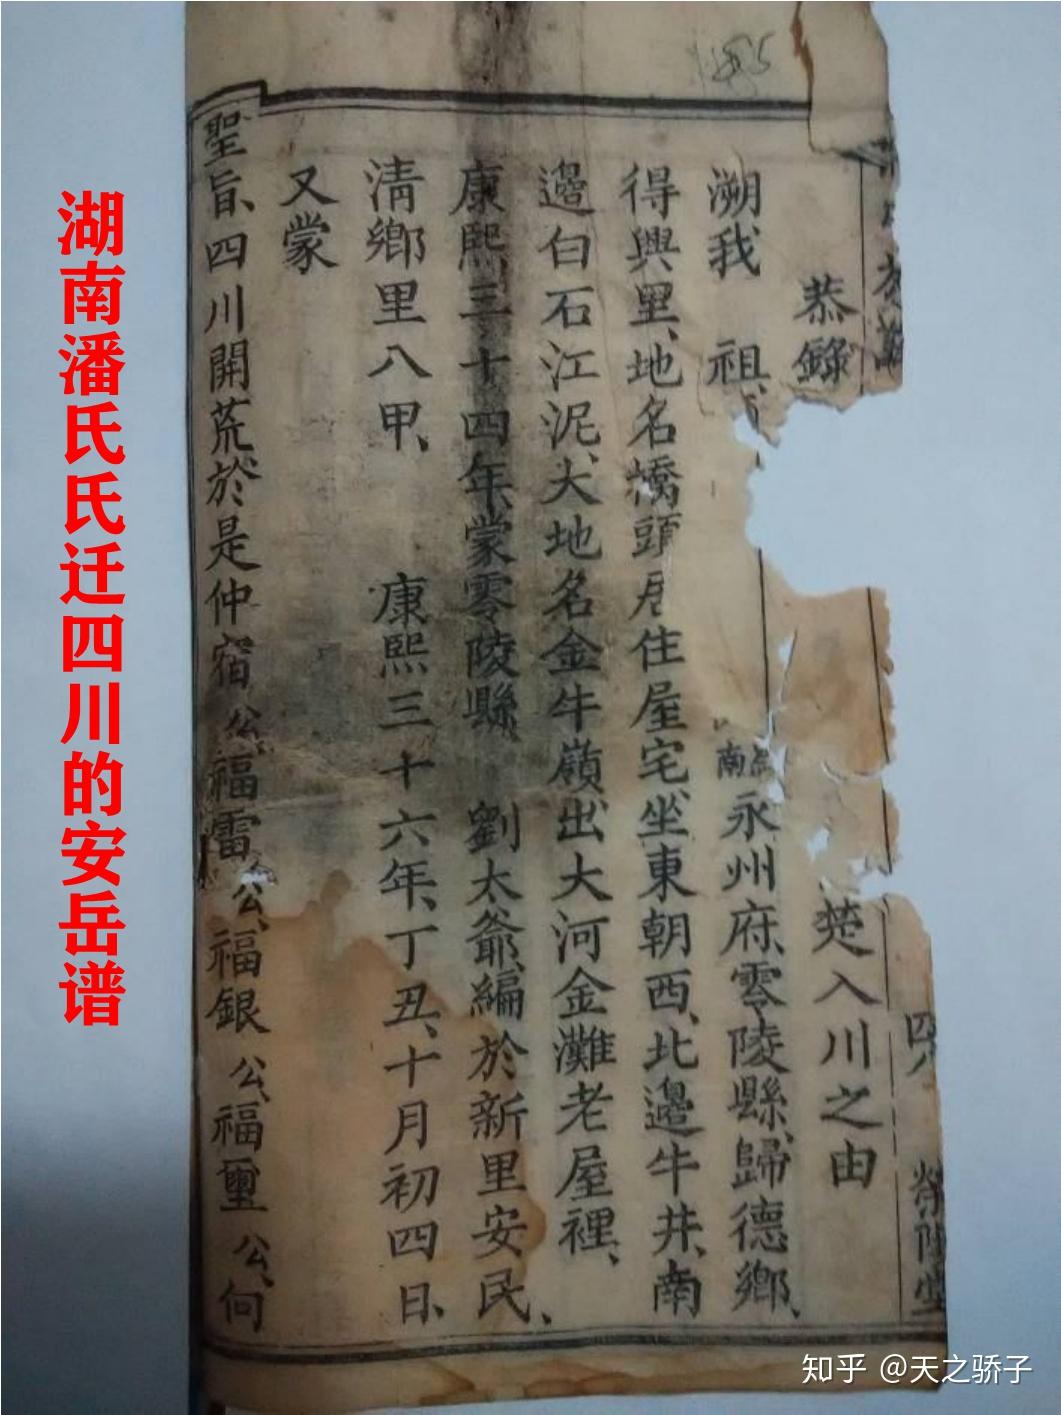 湖南潘氏氏迁四川的安岳谱
285
四 滎陽堂
恭錄 楚入川之由
溯我 祖 南 永州府、零陵縣、歸德鄉、
得興里、地名橋頭 住屋宅、坐東朝西、北邊牛井、南
邊白石江泥、大地名金牛嶺、出大河金灘老屋裡、
康熙三十四年、蒙零陵縣、劉太爺、編於新里安民、
清鄉里八甲、 康熙三十六年、丁丑、十月初四日、
又蒙
聖旨、四川開荒、於是仲宿公、福雷公、福銀公、福璽公、何
知乎 @天之骄子